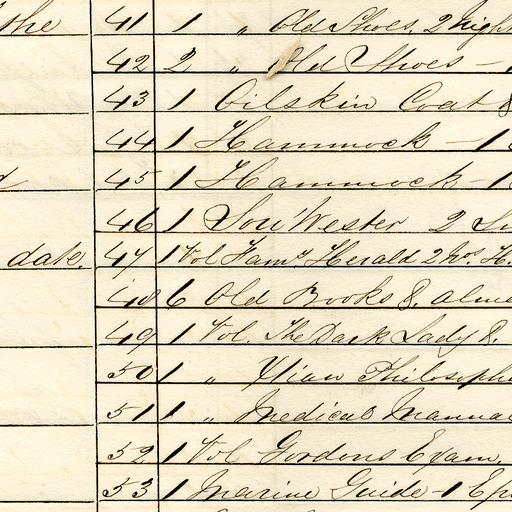 the 41 1 „ Old Shoes, 2 night
42 2 „ Old Shoes –
43 1 Oilskin Coat &
44 1 Hammock – 1
45 1 Hammock – 1
46 1 Sou'Wester 2
date. 47 1 Vol Famy Herald 2 nos.
48 6 Old Books &
49 1 Vol. The Dark Lady &
50 1 „
51 1 „ Medical Manual
52 1 Vol Gordons Exam.
53 1 Marine Guide – 1